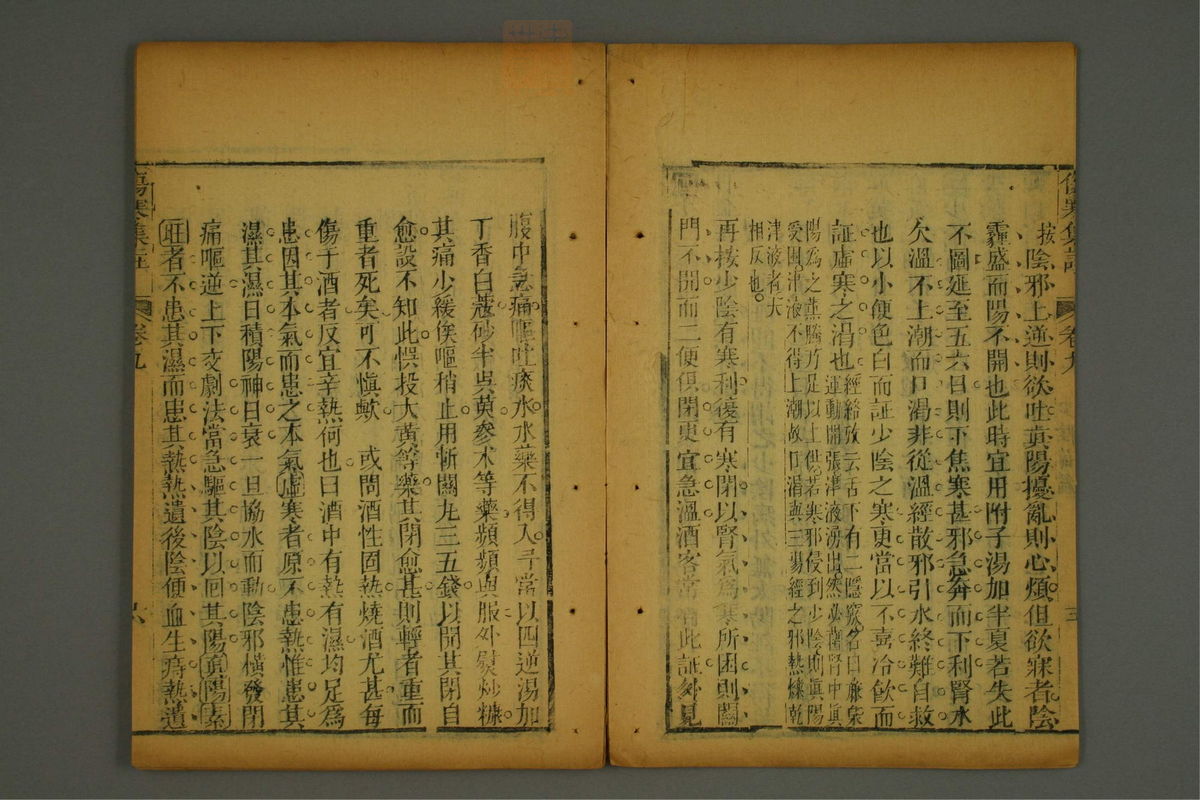 傷寒集註
卷九
三
按陰邪上逆則欲吐真陽擾亂則心煩但欲寐者陰
霾盛而陽不開也此時宜用附子湯加半夏若失此
不圖延至五六日則下焦寒甚邪急奔而下利腎水
欠溫不上潮而口渴非從溫經散邪引水終難自救
也以小便色白而証少陰之寒更當以不喜冷飲而
証虛寒之渴也經絡攷云舌下有二隱竅名曰廉泉
運動開張津液湧出然必藉腎中真
陽為之薰騰乃足以上供若寒邪侵到少陰則真陽
受困津液不得上潮故口渴與三陽經之邪熱爍乾
津液者大
相反也
再按少陰有寒利復有寒閉以腎氣為寒所困則關
門不開而二便俱閉更宜急溫酒客常有此証外見
腹中急痛嘔吐痰水水藥不得入口當以四逆湯加
丁香白蔻砂半吳萸參朮等藥頻頻與服外熨炒糠
其痛少緩俟嘔稍止用斬關丸三五錢以開其閉自
愈設不知此悞投大黃等藥其閉愈甚則輕者重而
重者死矣可不慎歟　或問酒性固熱燒酒尤甚每
傷于酒者反宜辛熱何也曰酒中有熱有濕均足為
患因其本氣而患之本氣虛寒者原不患熱惟患其
濕其濕日積陽神日衰一旦協水而動陰邪橫發閉
痛嘔逆上下交劇法當急驅其陰以回其陽真陽素
旺者不患其濕而患其熱熱遺後陰便血生痔熱遺
傷寒集註
卷九